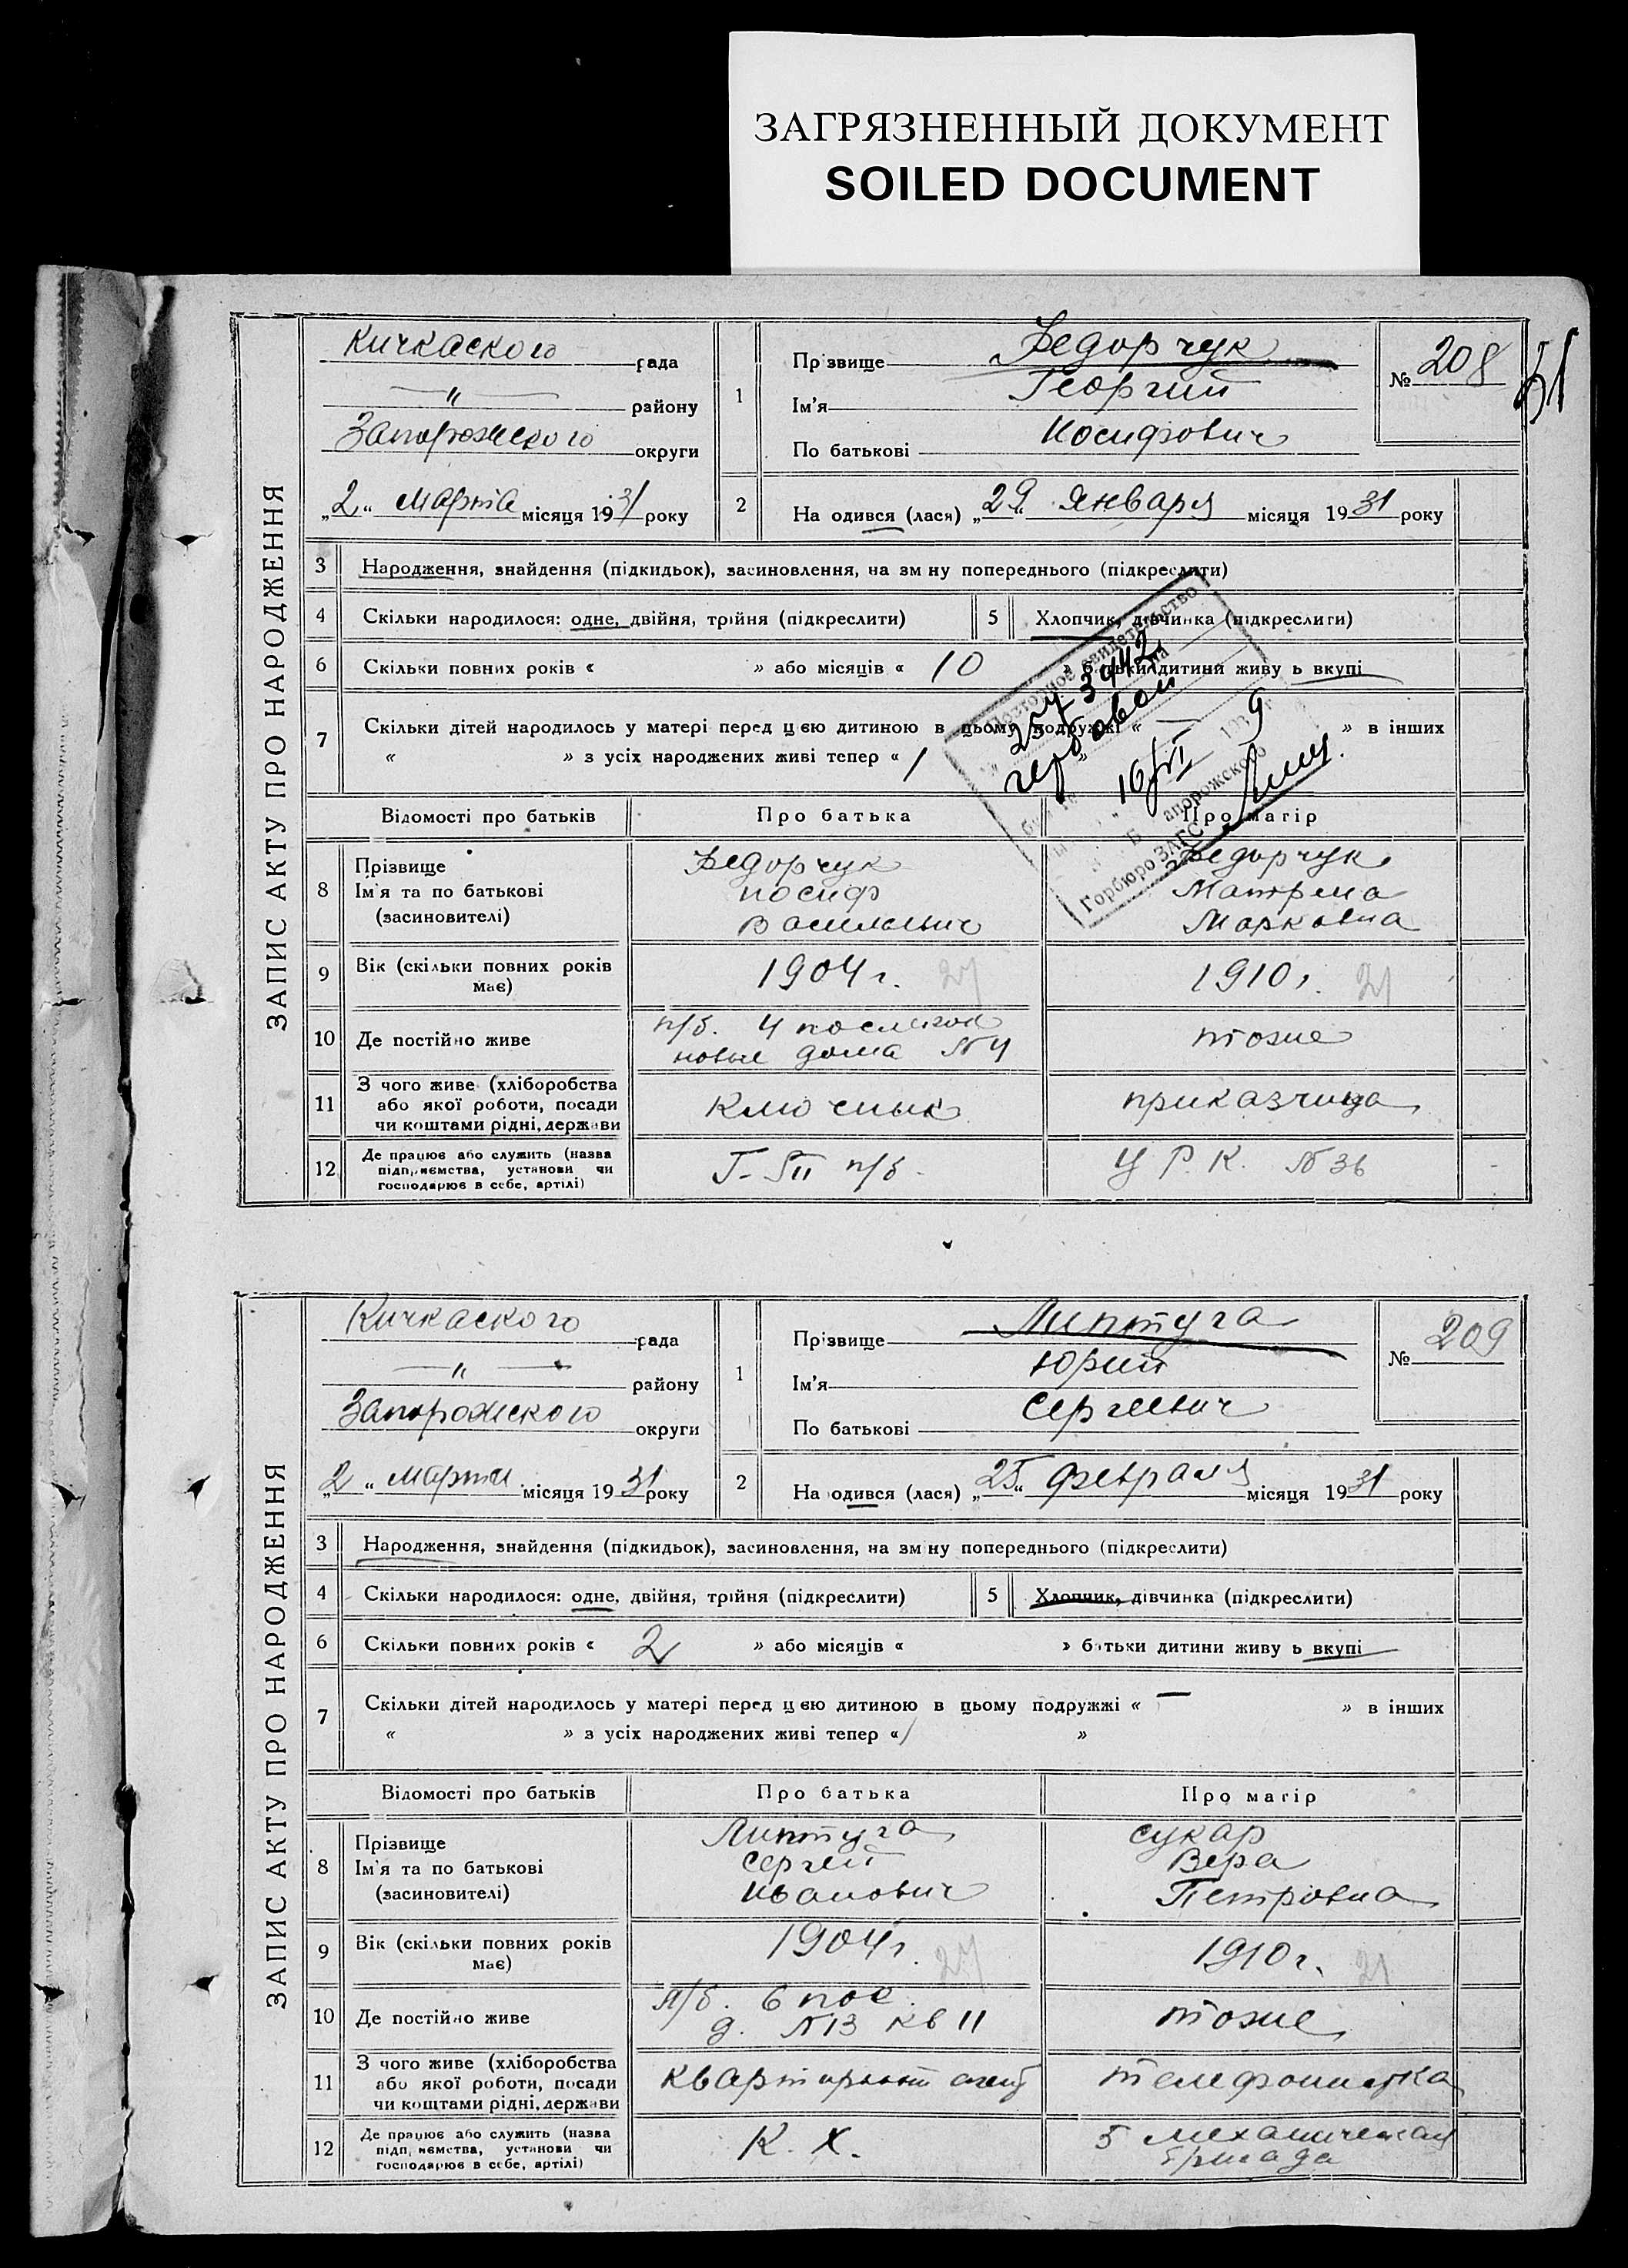 ЗАГРЯЗНЕННЫЙ ДОКУМЕНТ
SOILED DOCUMENT
ЗАПИС АКТУ ПРО НАРОДЖЕННЯ
Кичкаского рада
— " — району
Запорожского округи
„2“ Марта місяця 1931 року
1
Прізвище Федорчук
Ім'я Георгий
По батькові Иосифович
№ 208
51
2
На одився (лася) „29“ Января місяця 1931 року
3 Народження, знайдення (підкидьок), засиновлення, на зміну попереднього (підкреслити)
4 Скільки народилося: одне, двійня, трійня (підкреслити)
5 Хлопчик, дівчинка (підкреслити)
6 Скільки повних років « » або місяців « 10 » батьки дитини живу ь вкупі
7 Скільки дітей народилось у матері перед цею дитиною в цьому подружжі « — » в інших
« » з усіх народжених живі тепер « 1 »
свидетельство
гербовой
16/VI 9
Горбюро ЗАГС
Відомості про батьків Про батька Про матір
8 Прізвище
Ім'я та по батькові
(засиновителі)
Федорчук
Иосиф
Васильевич
Федорчук
Матрена
Марковна
9 Вік (скільки повних років має)
1904 г. 27
1910 г. 21
10 Де постійно живе
п/б. 4 поселок
новые дома №4
тоже
11 З чого живе (хліборобства
або якої роботи, посади
чи коштами рідні, держави
Ключник
приказчица
12 Де працює або служить (назва
підприємства, установи чи
господарює в себе, артілі)
п/б.
Ц Р. К. №36
ЗАПИС АКТУ ПРО НАРОДЖЕННЯ
Кичкаского рада
— " — району
Запорожского округи
„2“ Марта місяця 1931 року
1
Прізвище Липтуга
Ім'я Юрий
По батькові Сергеевич
№ 209
2
На одився (лася) „25“ февраля місяця 1931 року
3 Народження, знайдення (підкидьок), засиновлення, на зміну попереднього (підкреслити)
4 Скільки народилося: одне, двійня, трійня (підкреслити)
5 Хлопчик, дівчинка (підкреслити)
6 Скільки повних років « 2 » або місяців « » батьки дитини живу ь вкупі
7 Скільки дітей народилось у матері перед цею дитиною в цьому подружжі « — » в інших
« » з усіх народжених живі тепер « 1 »
Відомості про батьків Про батька Про матір
8 Прізвище
Ім'я та по батькові
(засиновителі)
Липтуга
Сергей
Иванович
Сукар
Вера
Петровна
9 Вік (скільки повних років має)
1904 г. 27
1910 г. 21
10 Де постійно живе
п/б. 6 пос.
д. №13 кв 11
тоже
11 З чого живе (хліборобства
або якої роботи, посади
чи коштами рідні, держави
квартирный агент
телефонистка
12 Де працює або служить (назва
підприємства, установи чи
господарює в себе, артілі)
К. Х.
5 механическая
бригада